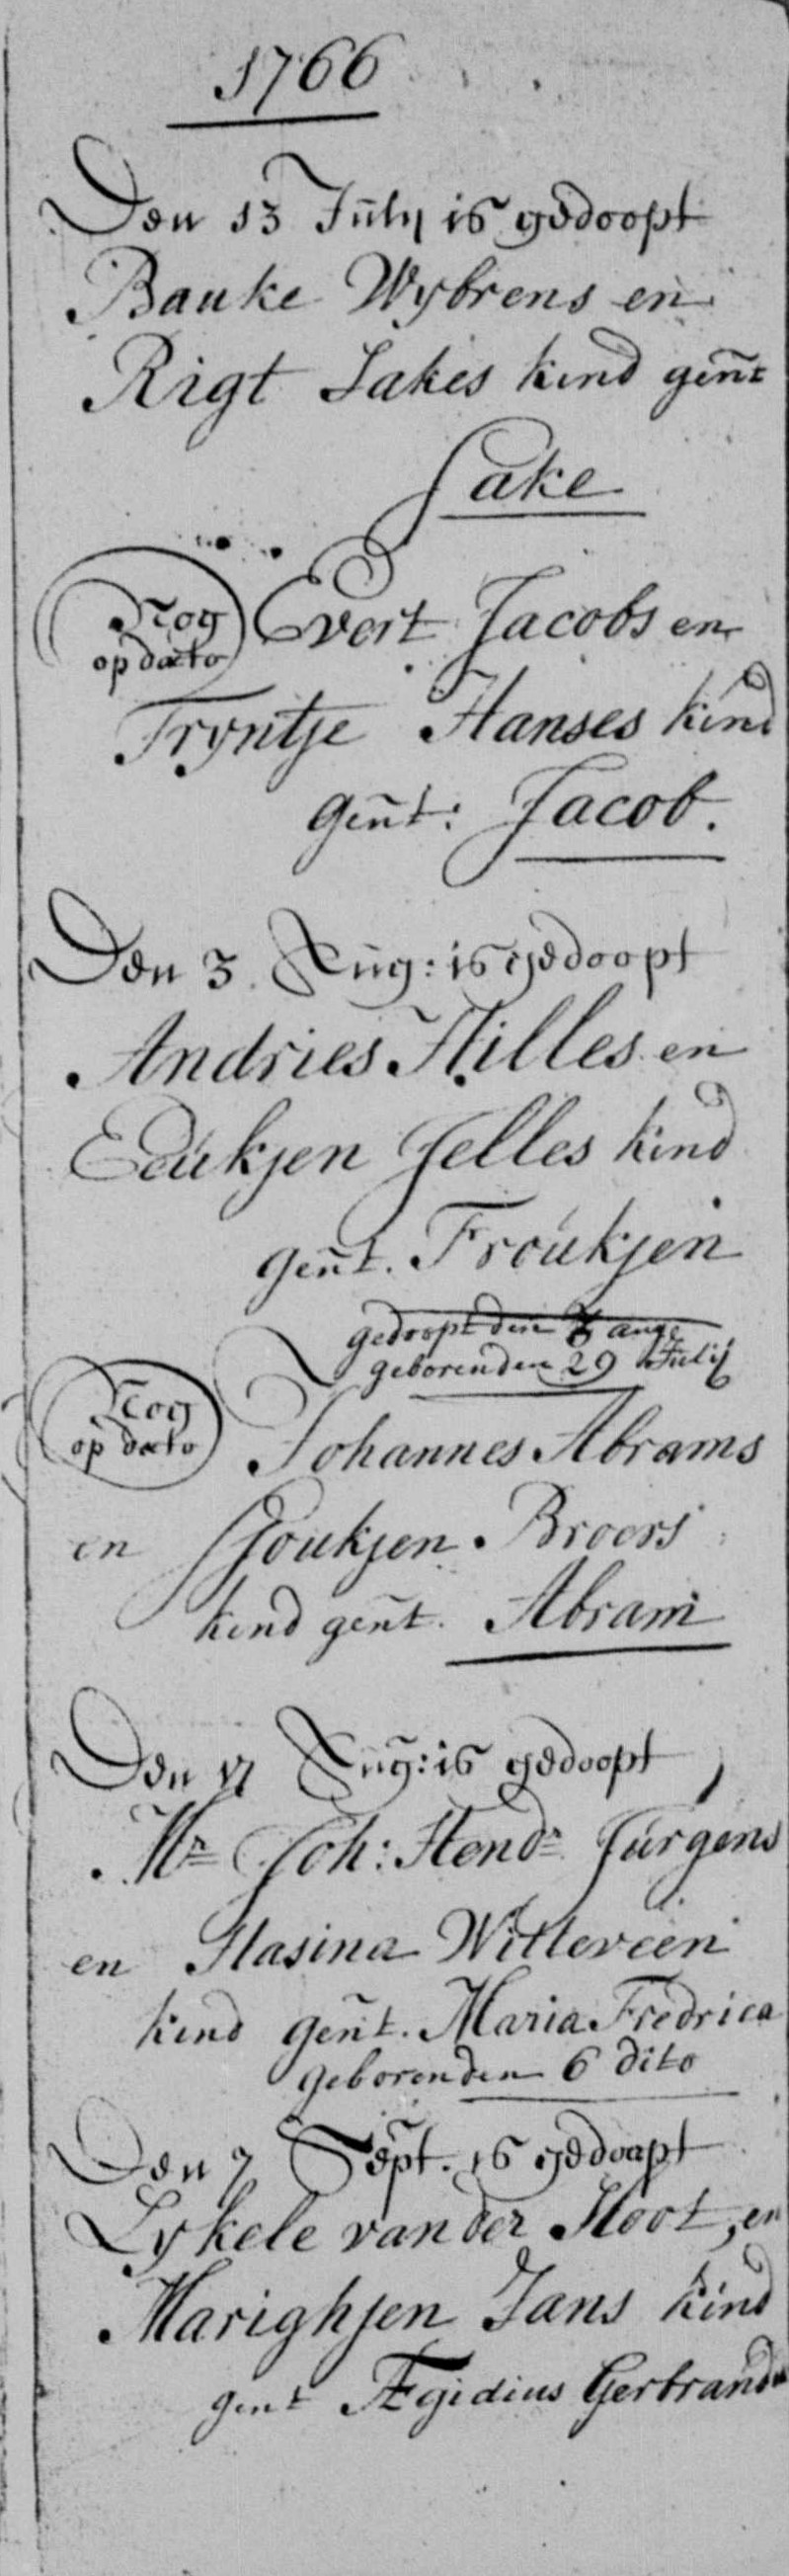 1766
Den 13 July is gedoopt
Bauke Wybrens en
Rigt Sakes kind gen̄t
Sake
Nog
op dato
Evert Jacobs en
Tryntje Hanses kind
gen̄t: Jacob.
Den 3. Aug: is gedoopt
Andries Hilles en
Eeukjen Jelles kind
gen̄t. Froukjen
gedoopt den 3 aug:
geboren den 29 Julij
Nog
op dato
Johannes Abrams
en Sjoukjen Broers
kind gen̄t. Abram
Den 17 Aug: is gedoopt
Mr Joh: Hendr Jurgens
en Hasina Witteveen
kind gen̄t. Maria Fredrica
geboren den 6 dito
Den 7 Sept. is gedoopt
Lykele van der Hoot, en
Marighjen Jans kind
gent Ægidius Gerbrandus